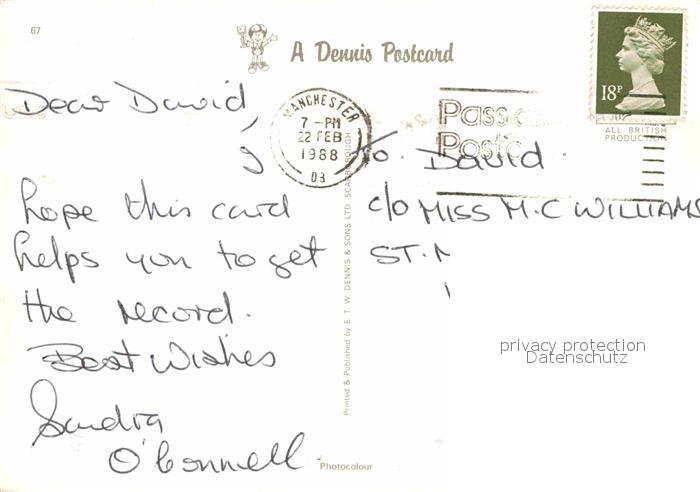 67
A Dennis Postcard
18P
MANCHESTER
7 - PM
22 FEB
1988
03
ALL BRITISH
PRODUCTION
Dear David,
I
hope this card
helps you to get
the record.
Best Wishes
Sandra
O'Connell.
to. David.
c/o MISS M.C WILLIAMS
ST.
privacy protection
Datenschutz
Printed & Published by E. T. W. DENNIS & SONS LTD. SCARBOROUGH
Photocolour